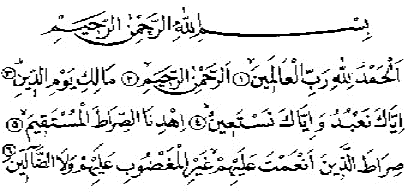 بِسْمِ اللهِ الرَّحْمٰنِ الرَّحِيْمِ
اَلْحَمْدُ لِلّٰهِ رَبِّ الْعَالَمِيْنَ ﴿١﴾ اَلرَّحْمٰنِ الرَّحِيْمِ ﴿٢﴾ مَالِكِ يَوْمِ الدِّيْنِ ﴿٣﴾
اِيَّاكَ نَعْبُدُ وَاِيَّاكَ نَسْتَعِيْنُ ﴿٤﴾ اِهْدِنَا الصِّرَاطَ الْمُسْتَقِيْمَ ﴿٥﴾
صِرَاطَ الَّذِيْنَ اَنْعَمْتَ عَلَيْهِمْ غَيْرِ الْمَغْضُوْبِ عَلَيْهِمْ وَلَا الضَّالِّيْنَ ﴿٦﴾